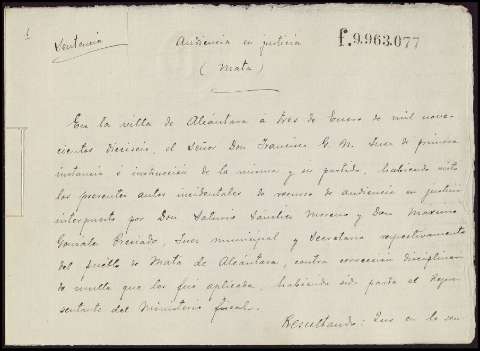 Sentencia
Audiencia en justicia
f.9.963.077
(Mata)
En la villa de Alcántara a tres de Enero de mil nove-
cientos dieciseis, el Señor Don Francisco G. M. Juez de primera
instancia e instrucción de la misma y su partido, habiendo visto
los presentes autos incidentales de recurso de audiencia en justicia
interpuesto por Don Saturio Sanchez Moreno y Don Maximo
Gonzalez Preciado, Juez municipal y Secretario respectivamente
del pueblo de Mata de Alcántara, contra corrección disciplinar
de multa que les fué aplicada, habiendo sido parte el Repre-
sentante del Ministerio fiscal.
Resultando: Que en la sen